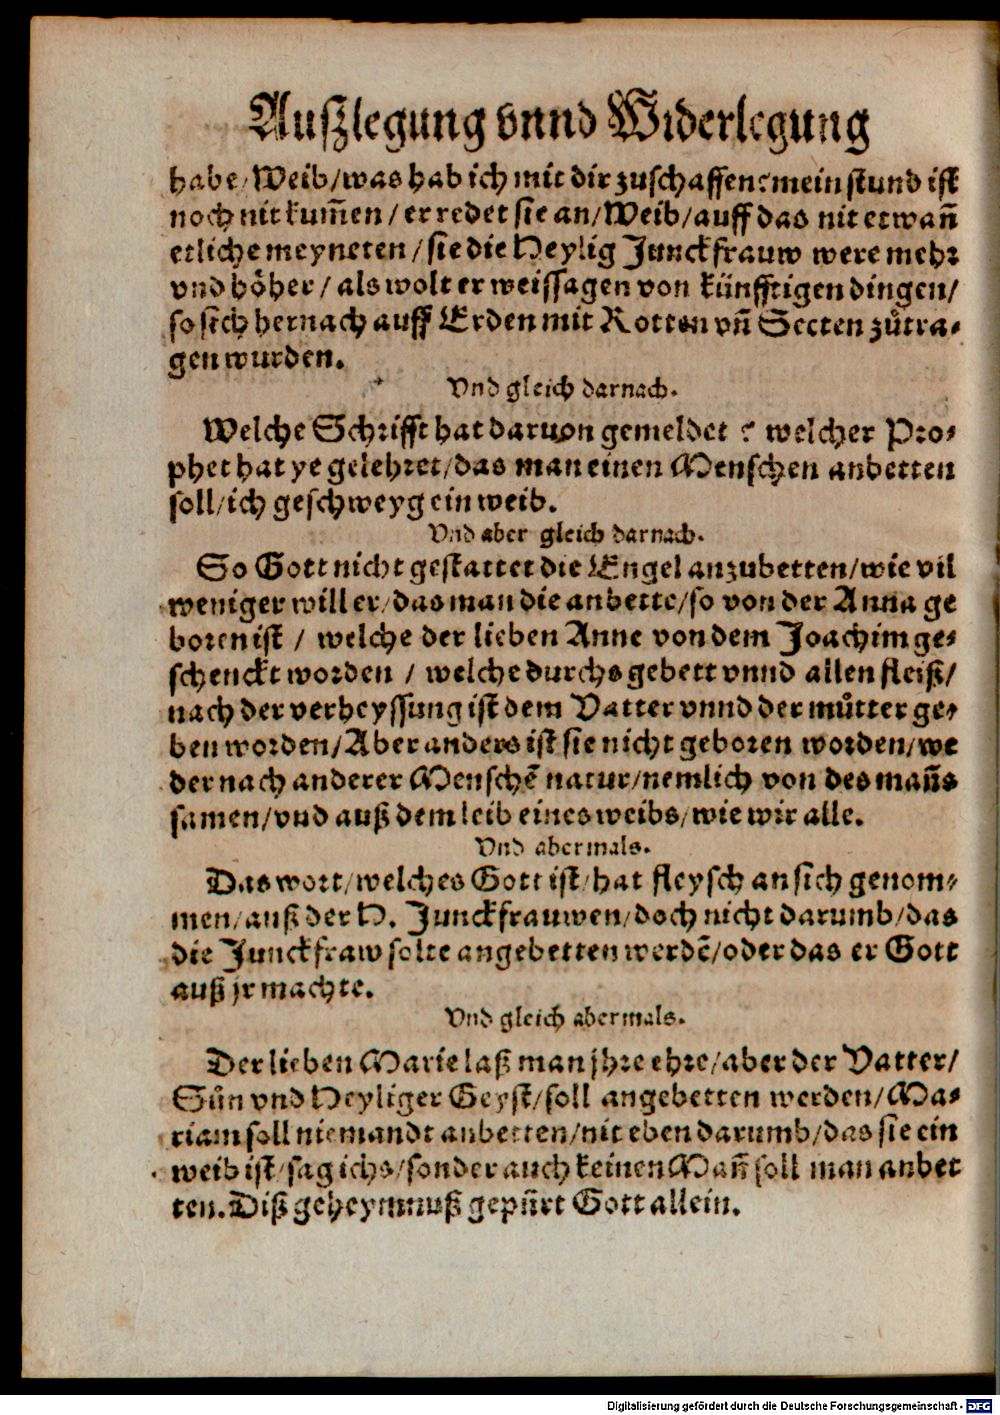 Außlegung vnnd Widerlegung
habe/Weib/was hab ich mit dir zuschaffen? mein stund ist
noch nit kum̄en/er redet sie an/Weib/auff das nit etwañ
etliche meyneten/sie die Heylig Junckfrauw were mehr
vnd hoͤher/als wolt er weissagen von künfftigen dingen/
so sich hernach auff Erden mit Rotten vñ Secten zůtra-
gen wurden.
Vnd gleich darnach.
Welche Schrifft hat daruon gemeldet? welcher Pro-
phet hat ye gelehret/das man einen Menschen anbetten
soll/ich geschweyg ein weib.
Vnd aber gleich darnach.
So Gott nicht gestattet die Engel anzubetten/wie vil
weniger will er/das man die anbette/so von der Anna ge
boren ist / welche der lieben Anne von dem Joachim ge-
schenckt worden / welche durchs gebett vnnd allen fleiß/
nach der verheyssung ist dem Vatter vnnd der můtter ge-
ben worden/Aber anders ist sie nicht geboren worden/we
der nach anderer Menschē natur/nemlich von des mañs
samen/vnd auß dem leib eines weibs/wie wir alle.
Vnd abermals.
Das wort/welches Gott ist/hat fleysch an sich genom-
men/auß der H. Junckfrauwen/doch nicht darumb/das
die Junckfraw solte angebetten werdē/oder das er Gott
auß jr machte.
Vnd gleich abermals.
Der lieben Marie laß man jhre ehre/aber der Vatter/
Sůn vnd Heyliger Geyst/soll angebetten werden/Ma-
riam soll niemandt anbetten/nit eben darumb/das sie ein
weib ist/sag ichs/sonder auch keinen Mañ soll man anbet
ten. Diß geheymnuß gepürt Gott allein.
Digitalisierung gefördert durch die Deutsche Forschungsgemeinschaft - DFG